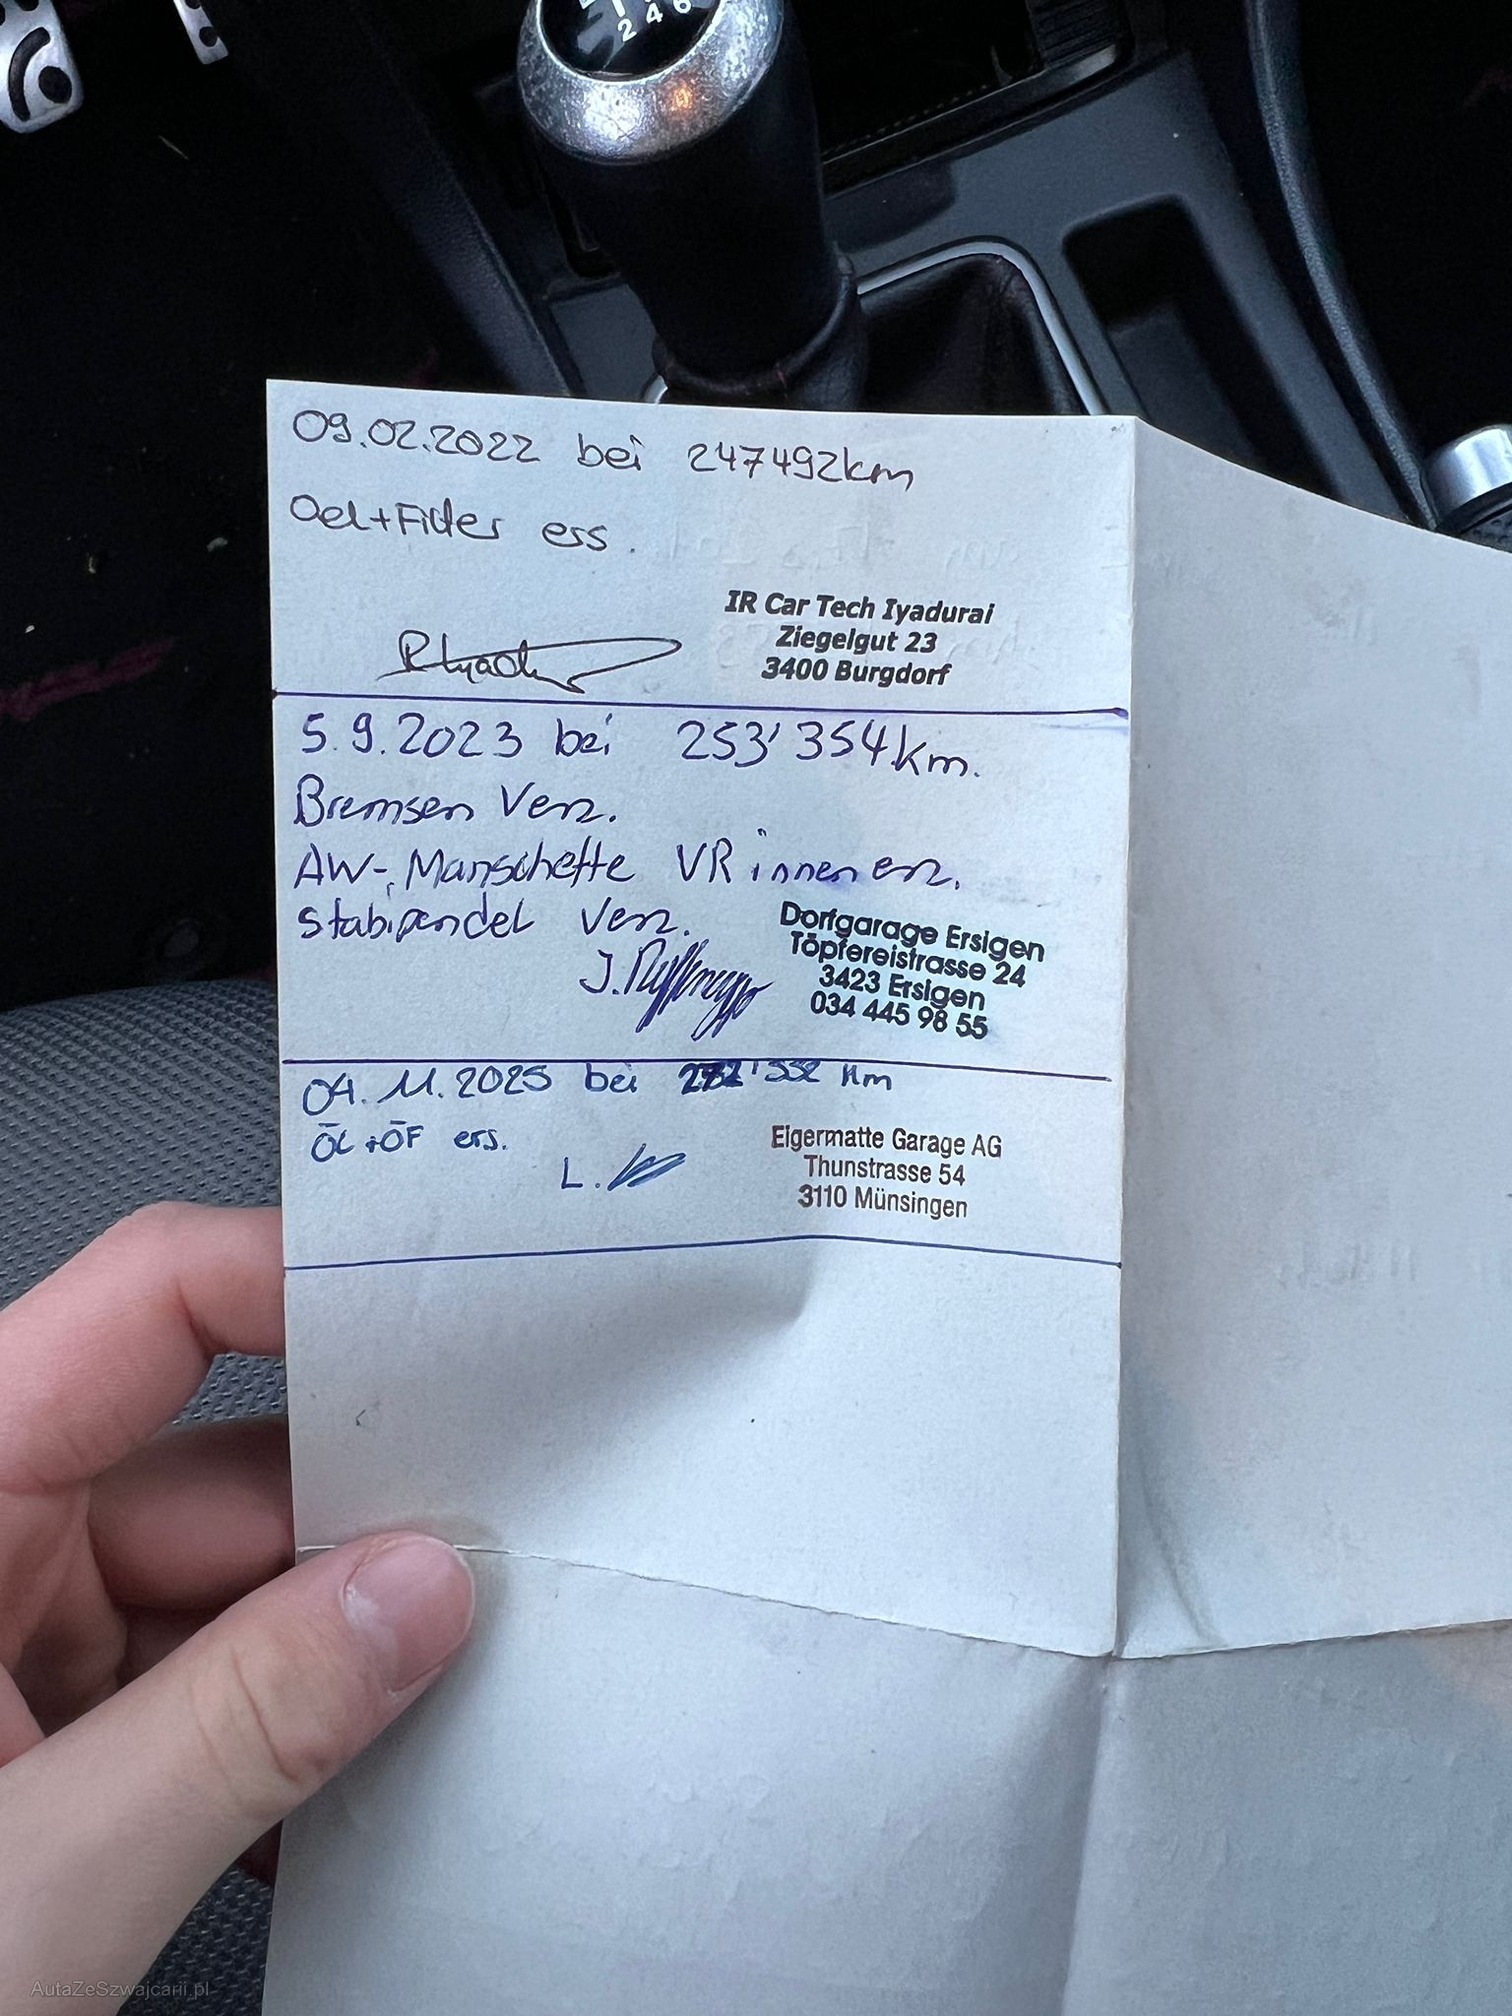 2 4 6
09.02.2022 bei 247492km
Oel+Filter ess.
IR Car Tech Iyadurai
Ziegelgut 23
3400 Burgdorf
5.9.2023 bei 253'354km.
Bremsen Verz.
AW-Manschette VR innen erz.
Stabipendel Verz.
J.
Dorfgarage Ersigen
Töpfereistrasse 24
3423 Ersigen
034 445 98 55
04.11.2025 bei km
ÖL+ÖF ers.
L.
Eigermatte Garage AG
Thunstrasse 54
3110 Münsingen
AutaZeSzwajcarii.pl